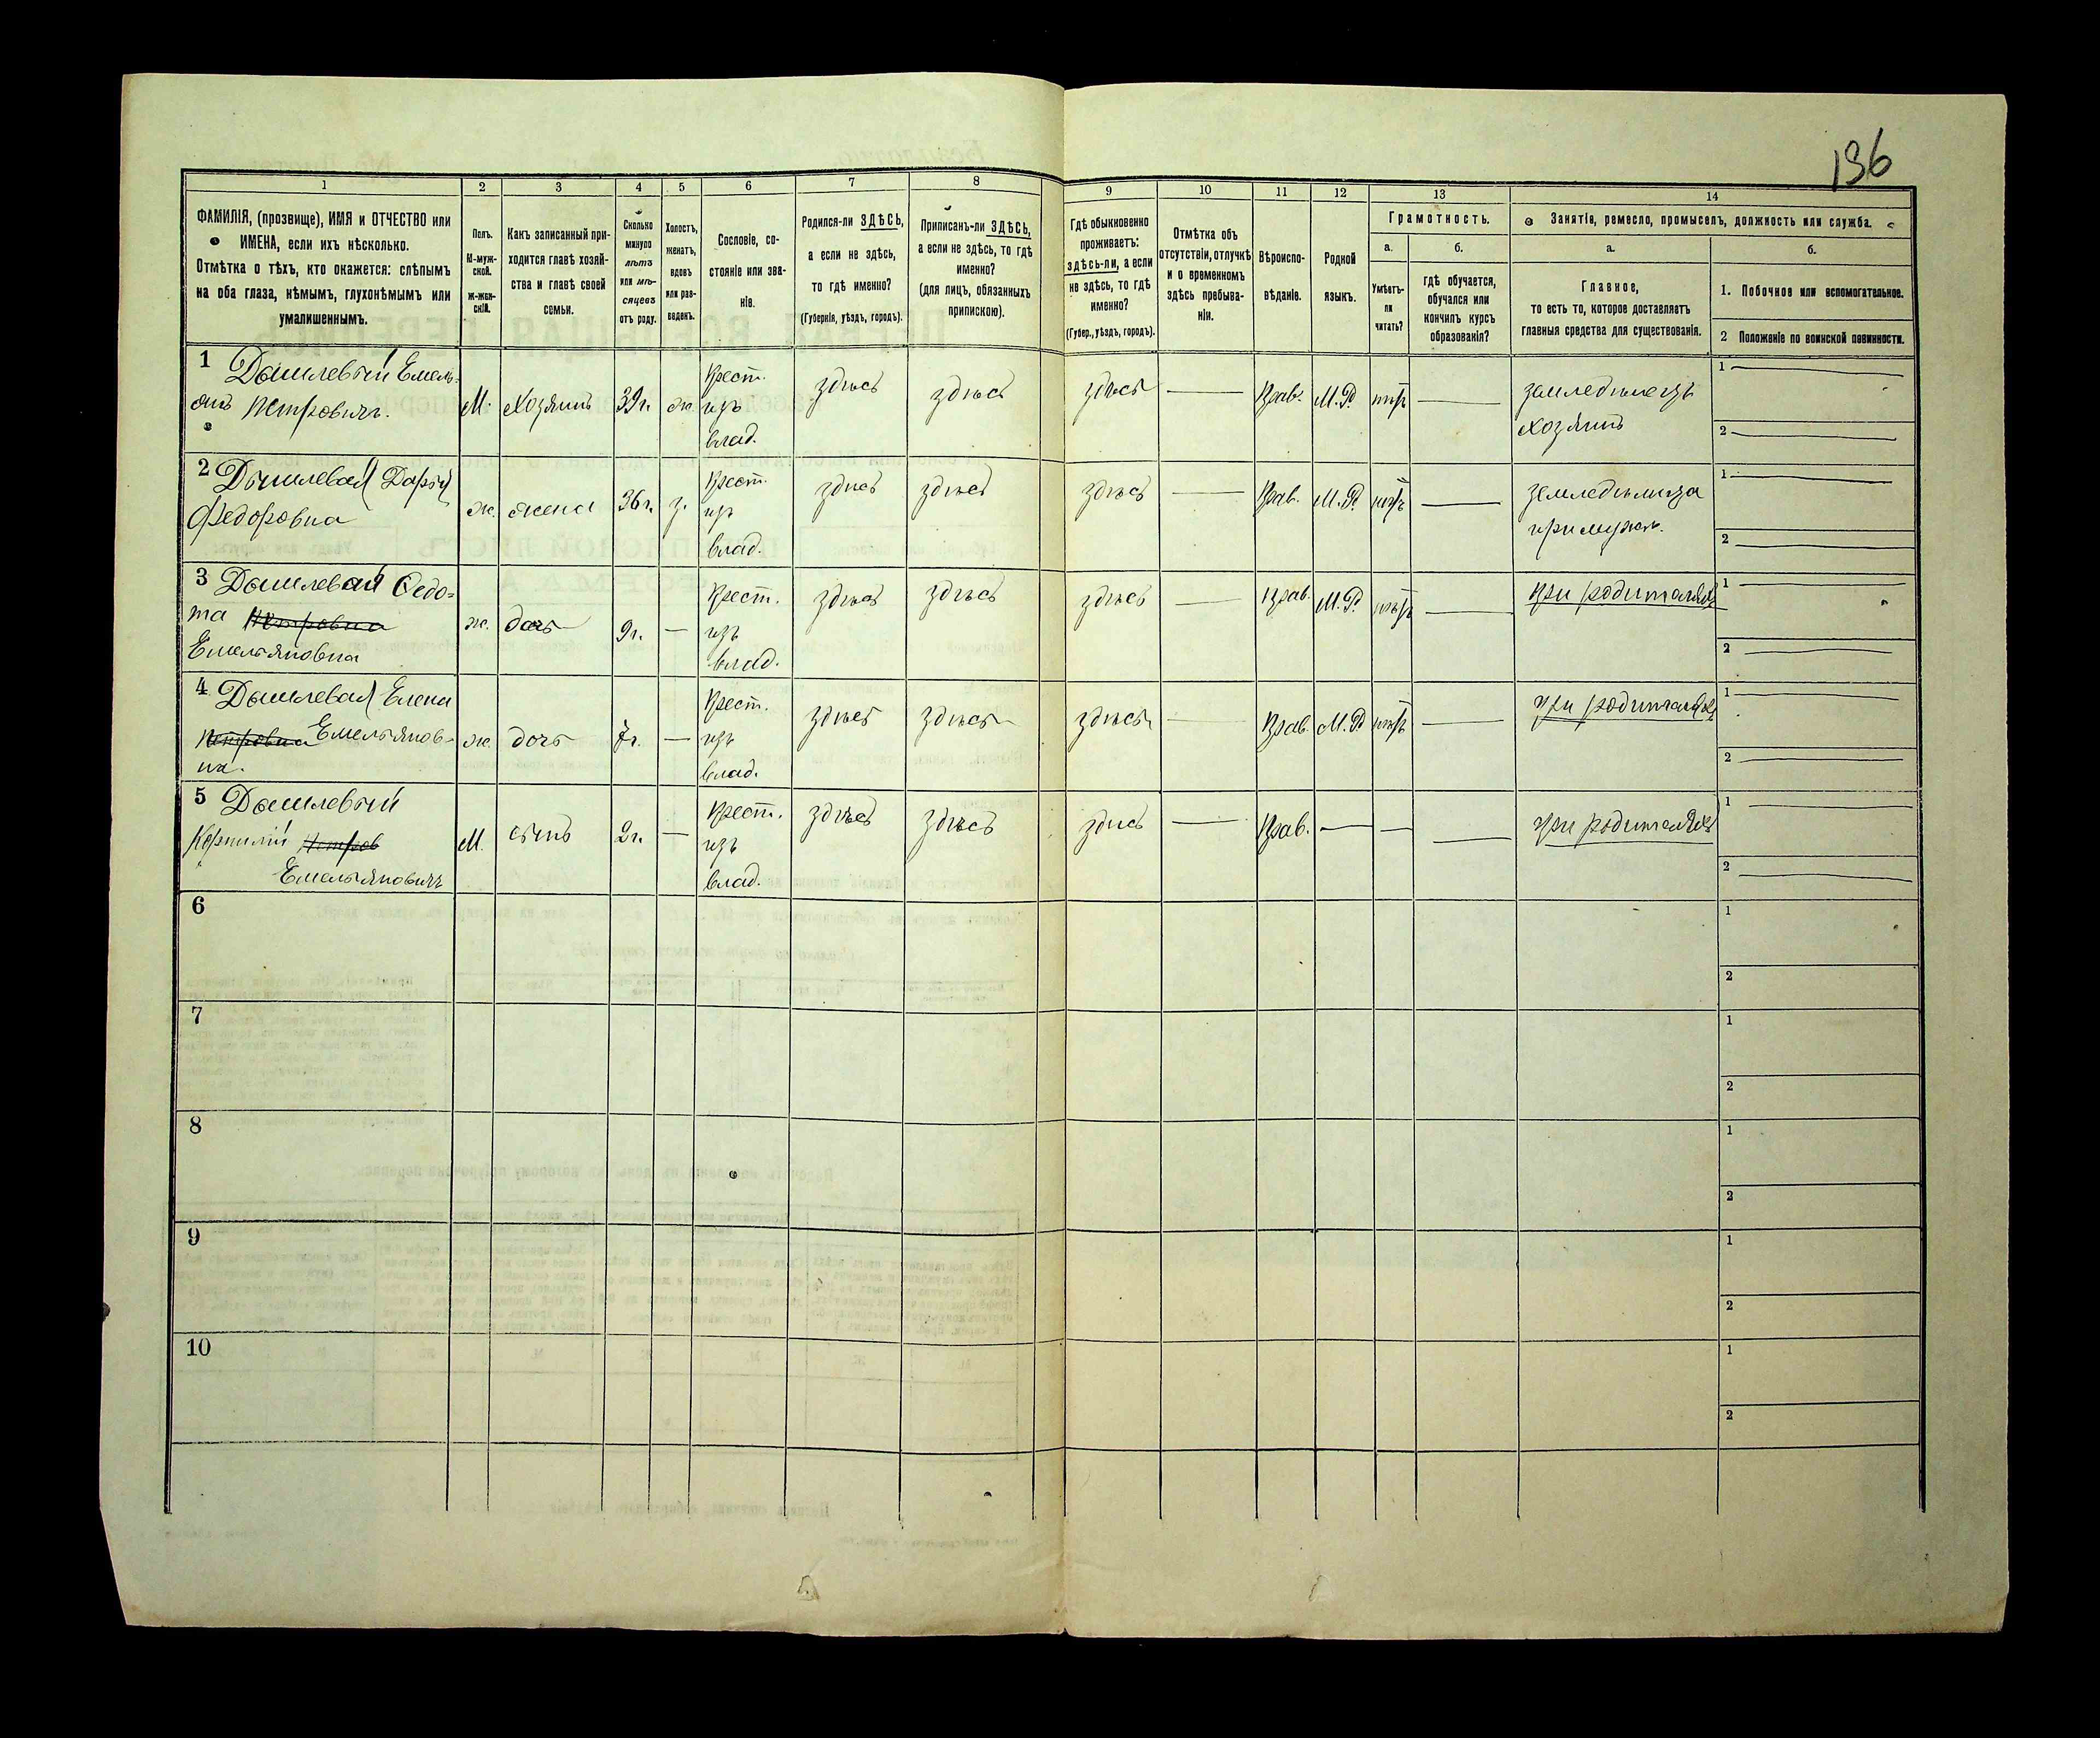 136
1 2 3 4 5 6 7 8 9 10 11 12 13 14
ФАМИЛІЯ, (прозвище), ИМЯ и ОТЧЕСТВО или
ИМЕНА, если ихъ нѣсколько.
Отмѣтка о тѣхъ, кто окажется: слѣпымъ
на оба глаза, нѣмымъ, глухонѣмымъ или
умалишеннымъ.
Полъ.
М-муж-
ской.
Ж-жен-
скій.
Какъ записанный при-
ходится главѣ хозяй-
ства и главѣ своей
семьи.
Сколько
минуло
лѣтъ
или мѣ-
сяцевъ
отъ роду.
Холостъ,
женатъ,
вдовъ
или раз-
веденъ.
Сословіе, со-
стояніе или зва-
ніе.
Родился-ли ЗДѢСЬ,
а если не здѣсь,
то гдѣ именно?
(Губернія, уѣздъ, городъ).
Приписанъ-ли ЗДѢСЬ,
а если не здѣсь, то гдѣ
именно?
(для лицъ, обязанныхъ
припискою).
Гдѣ обыкновенно
проживаетъ:
здѣсь-ли, а если
не здѣсь, то гдѣ
именно?
(Губер., уѣздъ, городъ).
Отмѣтка объ
отсутствіи, отлучкѣ
и о временномъ
здѣсь пребыва-
ніи.
Вѣроиспо-
вѣданіе.
Родной
языкъ.
Грамотность.
а.
Умѣетъ-
ли
читать?
б.
гдѣ обучается,
обучался или
кончилъ курсъ
образованія?
Занятіе, ремесло, промыселъ, должность или служба.
а.
Главное,
то есть то, которое доставляетъ
главныя средства для существованія.
б.
1. Побочное или вспомогательное.
2 Положеніе по воинской повинности.
1 Дышлевый Емель-
янъ Петровичъ. М. Хозяинъ 39 г. ж. Крест. изъ влад. здѣсь здѣсь здѣсь — Прав. М.Р. нѣтъ — земледѣлецъ
хозяинъ
1 —
2 —
2 Дышлевая Дарья
Федоровна ж. жена 36 г. з. Крест. изъ влад. здѣсь здѣсь здѣсь — Прав. М.Р. нѣтъ — земледѣлица
при мужѣ.
1 —
2 —
3 Дышлевая Федо-
та Петровна
Емельяновна ж. дочь 9 г. — Крест. изъ влад. здѣсь здѣсь здѣсь — Прав. М.Р. нѣтъ — при родителяхъ
1 —
2 —
4 Дышлевая Елена
Петровна Емельянов-
на. ж. дочь 7 г. — Крест. изъ влад. здѣсь здѣсь здѣсь — Прав. М.Р. нѣтъ — при родителяхъ
1 —
2 —
5 Дышлевый
Корнилій Петров
Емельяновичъ М. сынъ 2 г. — Крест. изъ влад. здѣсь здѣсь здѣсь — Прав. — — — при родителяхъ
1 —
2 —
6 1
2
7 1
2
8 1
2
9 1
2
10 1
2